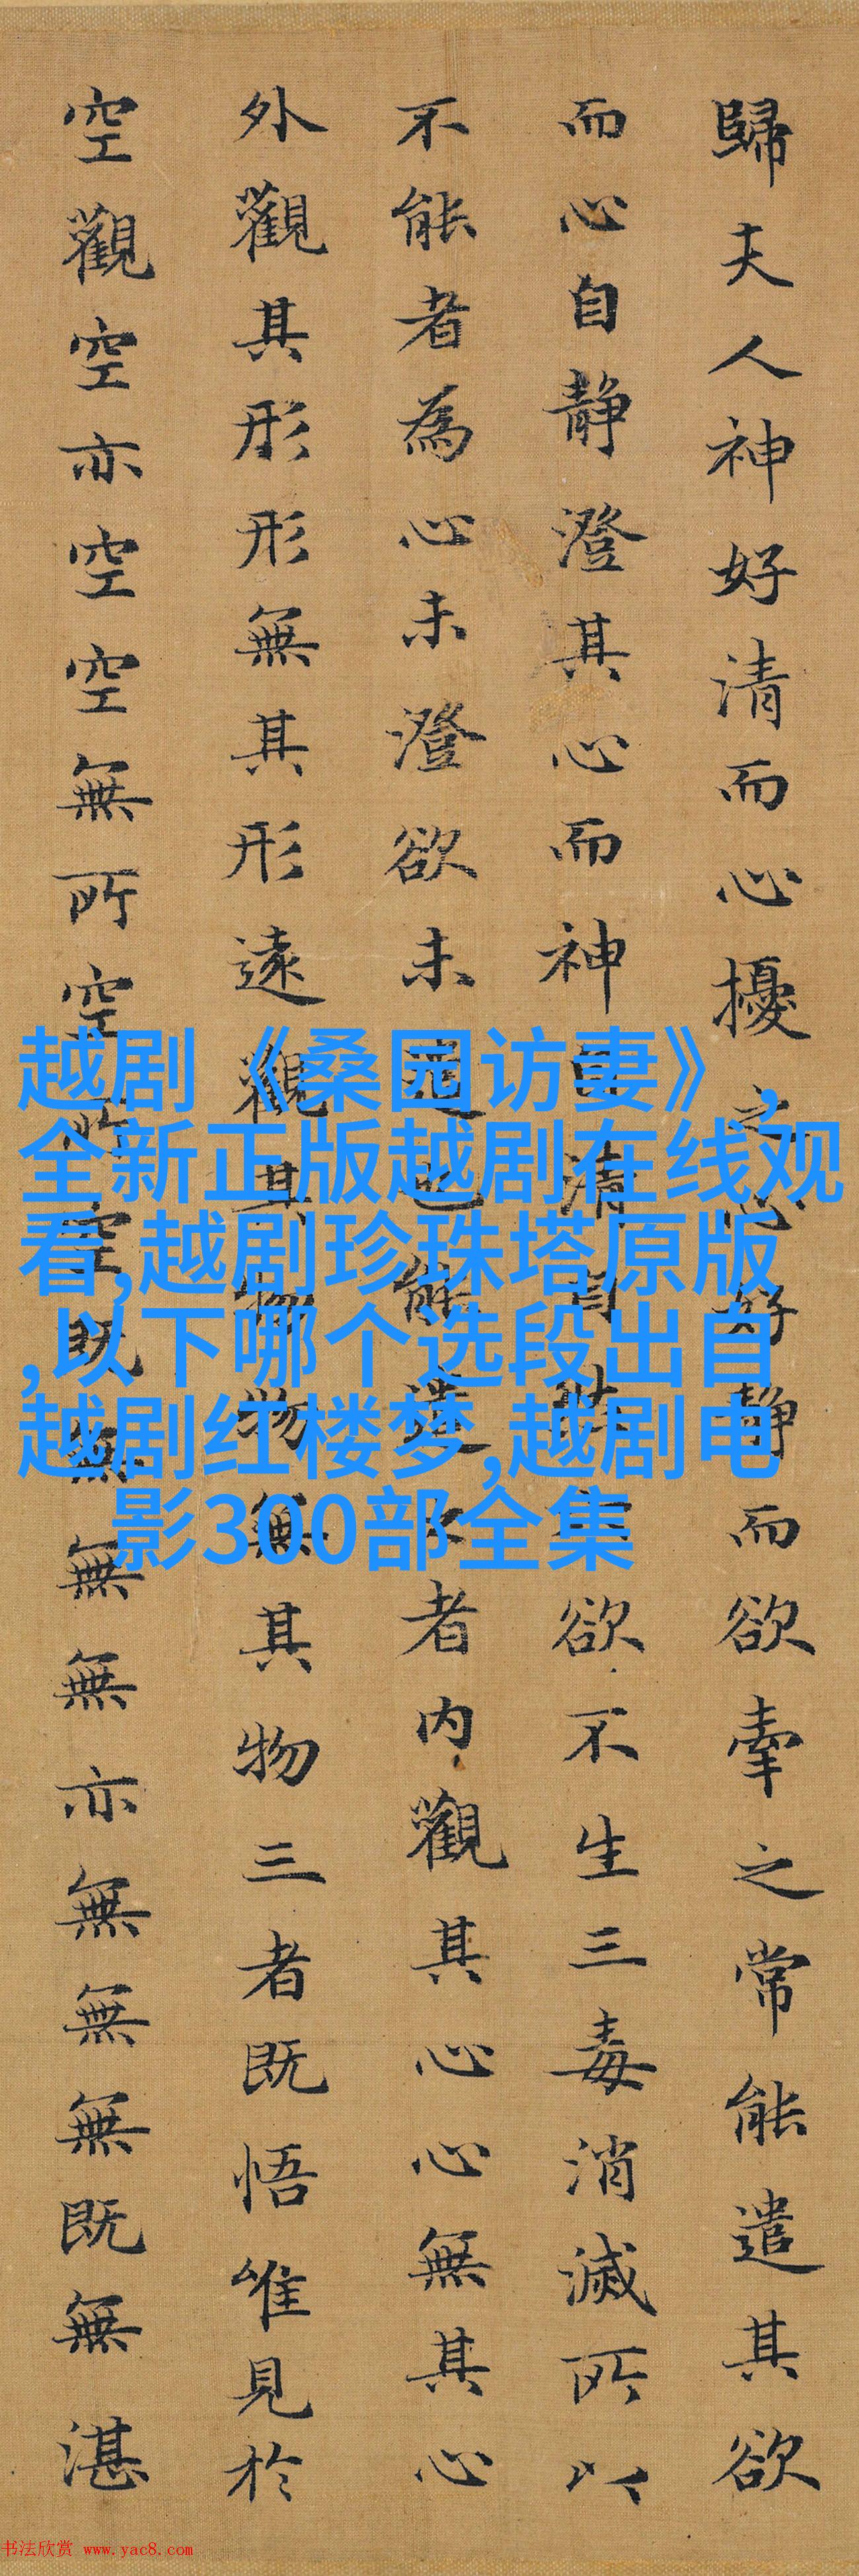 歸夫人神好清而心擾之心好静而欲牽之常能遣其欲
而心自静澄其心而神自清自然欲不生三毒消滅所以
不能者為心未澄欲未遣也能遣之者内觀其心心無其心
外觀其形形無其形遠觀其物物無其物三者既悟唯見於
空觀空亦空空無所空所空既無無無亦無無無既無湛
越剧《桑园访妻》,
全新正版越剧在线观
看,越剧珍珠塔原版
,以下哪个选段出自
越剧红楼梦,越剧电
影300部全集
书法欣赏 www.yac8.com